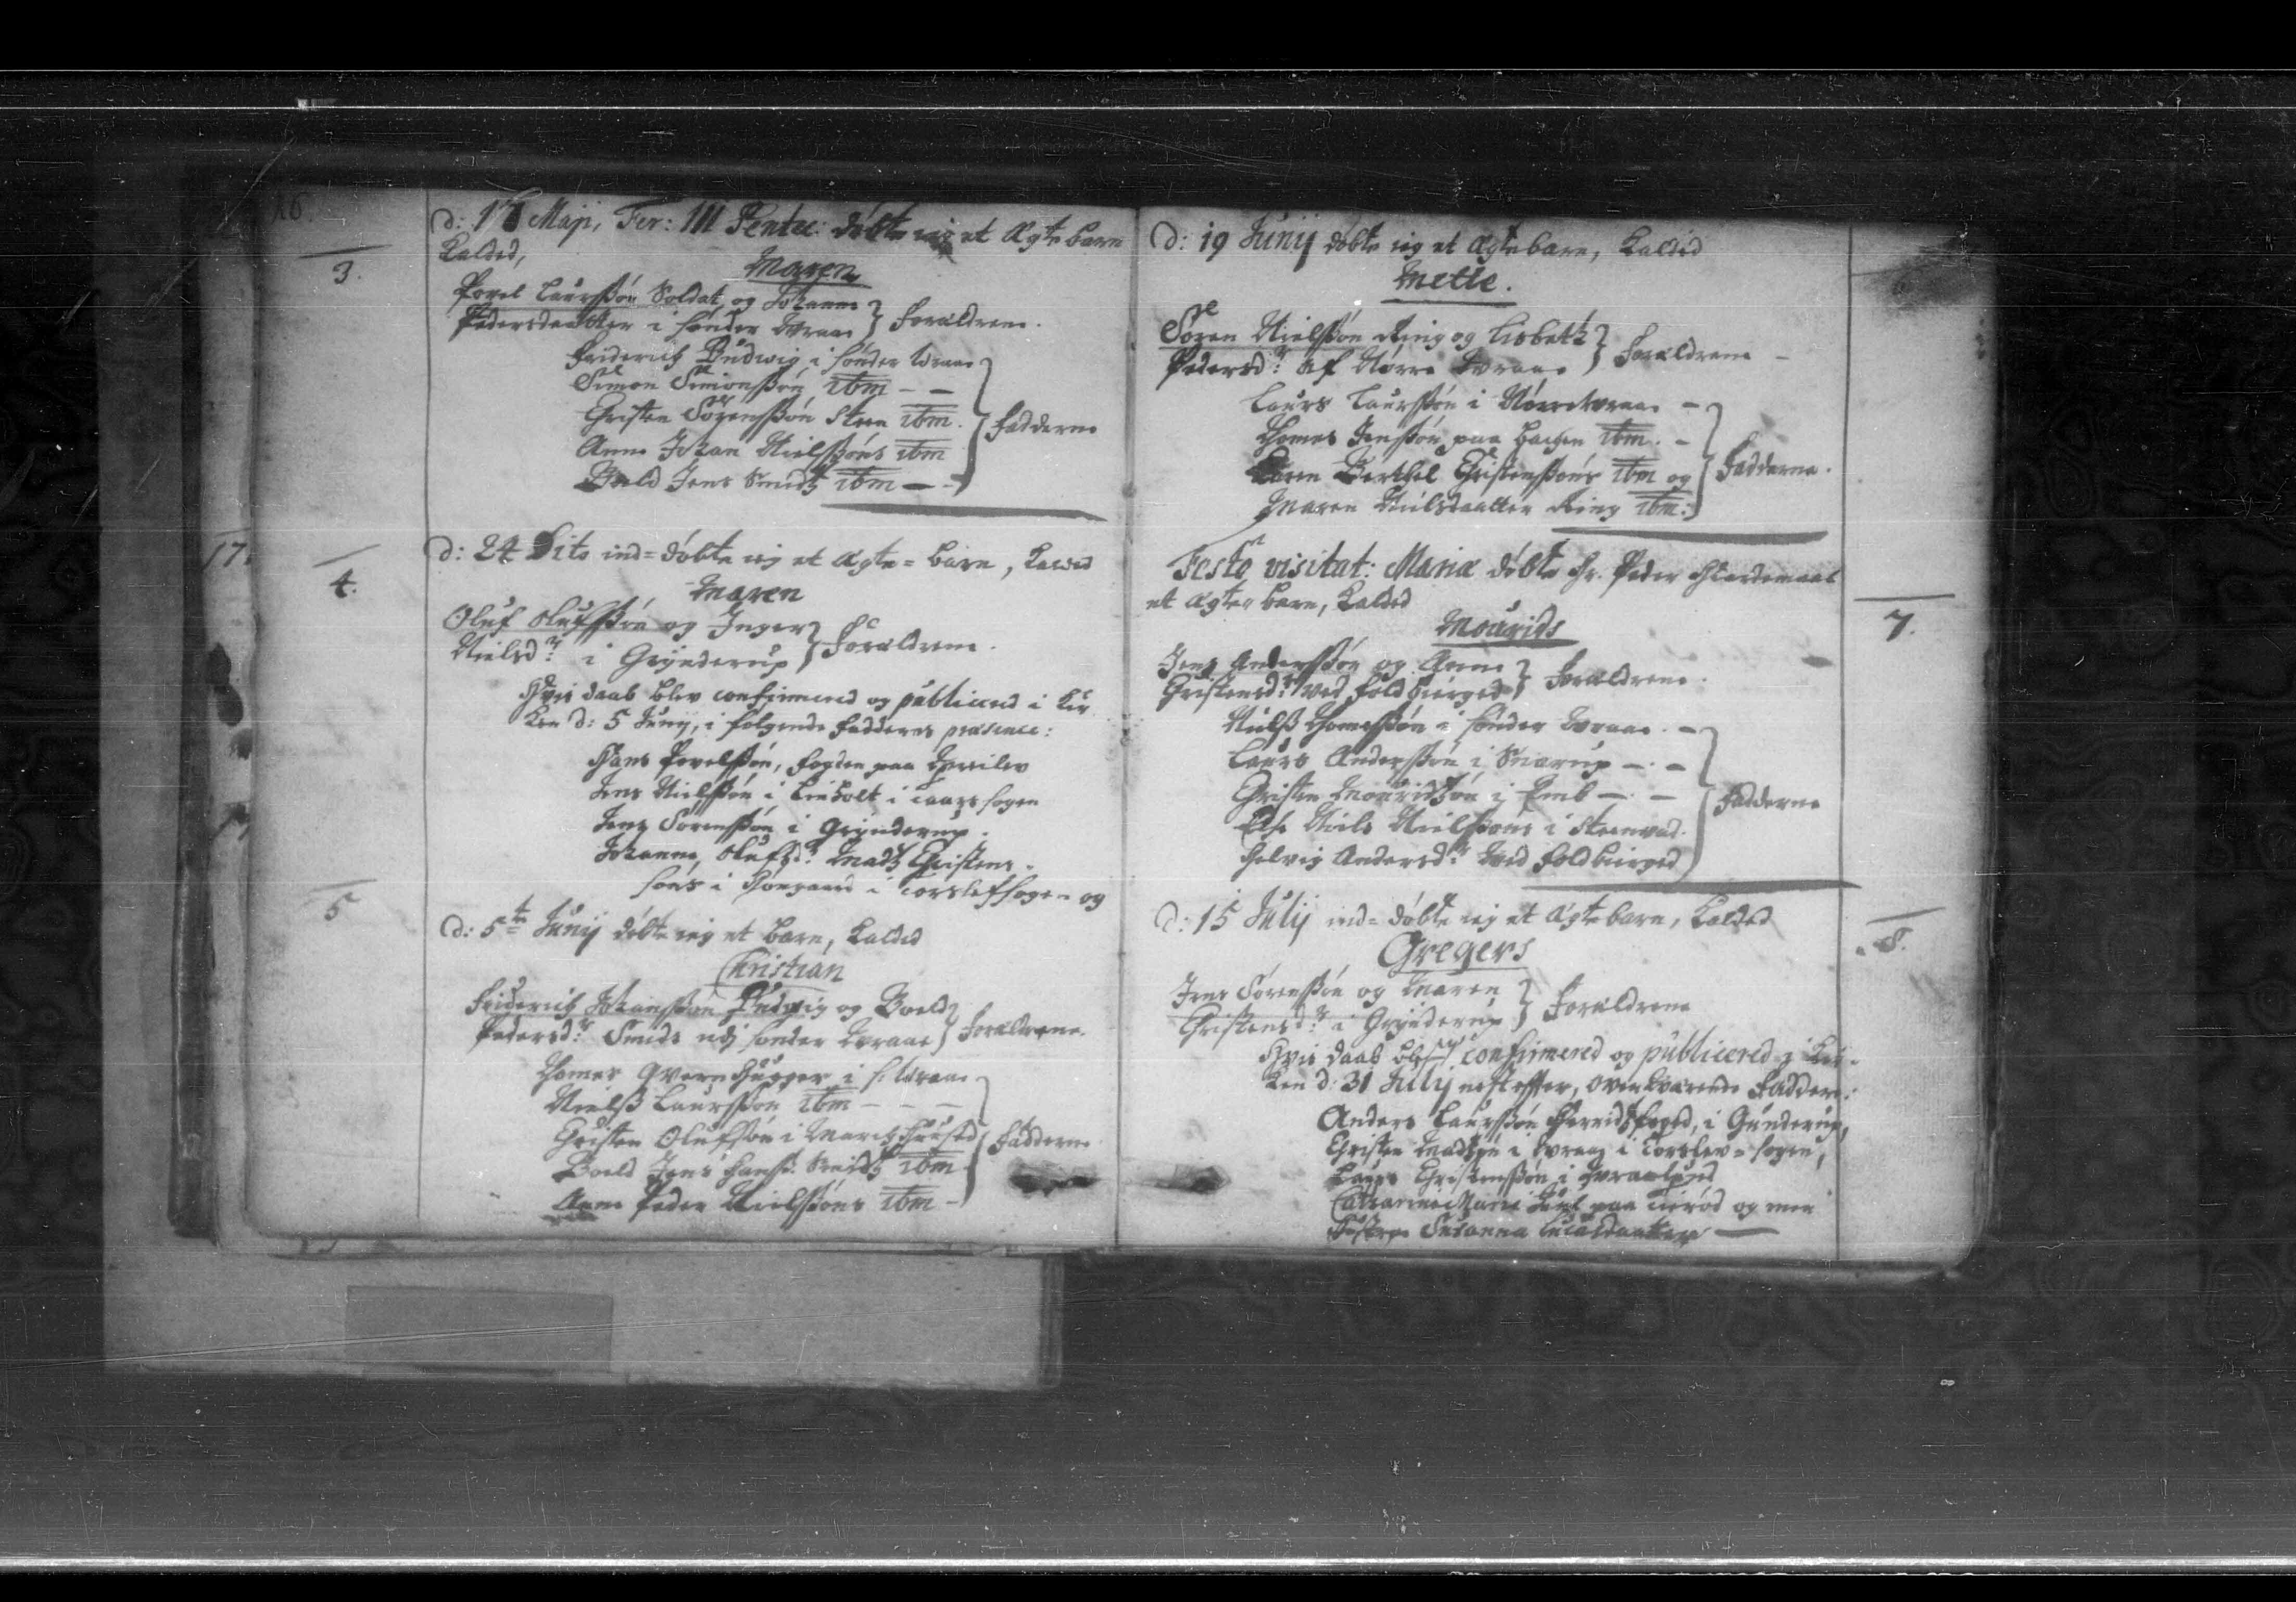 16.
d: 17 Maji, Fer: III Pentec: døbte ieg et ægte barn
3.
kalded,
Maren
Povel Laursøn Soldat og Johanne
Pedersdaatter i sønder Wraae } Forældrene.
Friderich Ludwig i sønder Wraae
Simon Simonsøn ibm – –
Christen Sørensøn Steen ibm.
Anne Johan Nielsøns ibm
Boeld Jens Smidtz ibm – –
Fadderne
17.
4.
d: 24 Dito ind=døbte ieg et ægte=barn, kalded
Maren
Oluf Olufsøn og Inger
Nielsd:r i Grynderup } Forældrene.
Hvis daab blev confirmered og publicered i Kir
ken d: 5 Junij, i følgende fadderes præsence:
Hans Povelsøn, fogden paa
Jens Nielsøn i Linholt i Taars sogen
Jens Sørensøn i Grynderup.
Johanne Olufsd:r Madtz Christen-
søns i Høngaard i Torslef sogen og
5
d: 5te Junij døbte ieg et barn, kalded
Christian
Friderich Johansøn Ludwig og Boeld
Pedersd:r Smids udj sønder Wraae } Forældrene.
Thomes Qvernhugger i s: Wraae
Nielss Laursøn ibm – – –
Christen Olufsøn i
Boeld Jens Hanss: Smidtz ibm
Anne Peder Nielsøns ibm –
Fadderne
d: 19 Junij døbte ieg et ægte barn, kalded
Mette.
Søren Nielsøn Ring og Lisbeth
Pedersd:r af Nørre Wraae } Forældrene –
Laurs Laursøn i Nørrewraae –
Thomes Jensøn paa ibm. –
Karen Berthel Christensøns ibm og
Maren Nielsdaatter Ring ibm:
Fadderne.
Festo visitat: Mariæ døbte Hr. Peder
et ægte barn, kalded
7.
Mourids
Jens Andersøn og Anne
Christensd:r ved Foldbierged } Forældrene.
Nielss Thomesøn i sønder Wraae. –
Laurs Andersøn i Snarup –. –
Christen Mouridsøn i Emb –. –
Else Niels Nielsøns i Steenvad.
Helvig Andersd:r ved Foldbierged
Fadderne
8.
d: 15 Julij ind=døbte ieg et ægte barn, kalded
Gregers
Jens Sørensøn og Maren
Christensd:r i Grynderup } Forældrene
Hvis daab blef confirmered og publicered i Kir-
ken d: 31 Julij nest effter, ovenværende Faddere:
Anders Laursøn Herridsfoged, i Gunderup,
Christen Madsøn i Wraae i Torslev=sogen,
Laurs Christensøn i
Catharine Marie Juul paa og min
Søster Susanna Lucasdaatter –